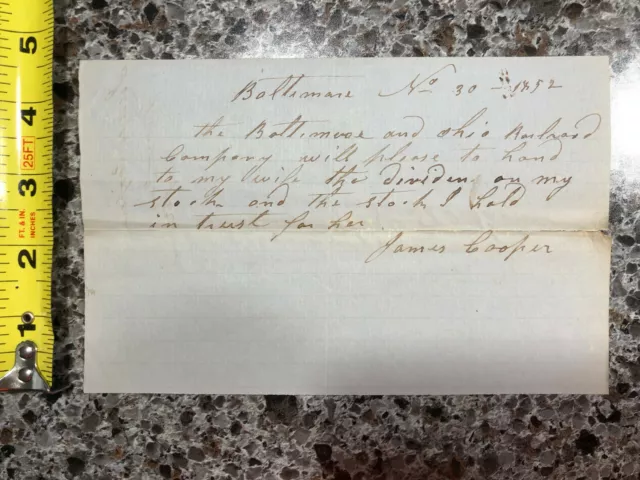 Baltimore No 30 - 1852
the Baltimore and Ohio Railroad
Company will please to hand
to my wife the dividen on my
stock and the stock I hold
in trust for her.
James Cooper
5
4
3
2
1
25FT
FT. & IN.
INCHES